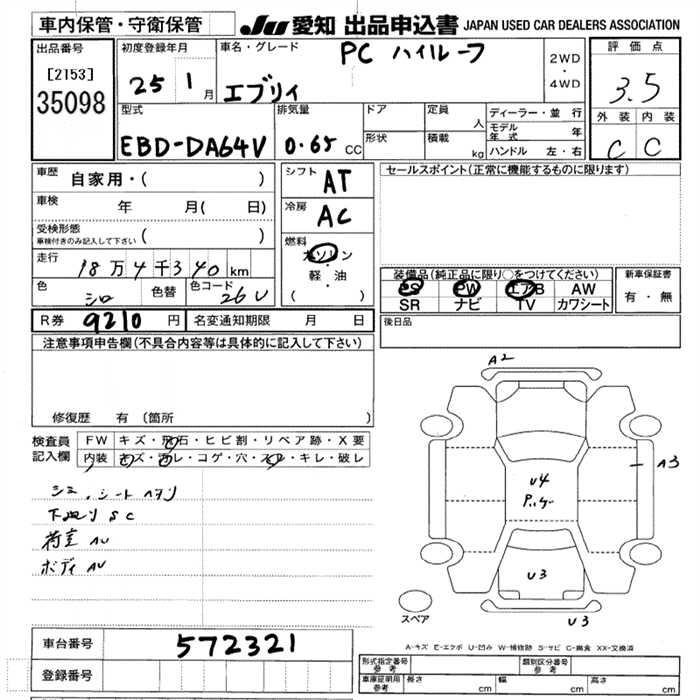 車内保管・守衛保管 JU 愛知 出品申込書 JAPAN USED CAR DEALERS ASSOCIATION
出品番号 初度登録年月 車名・グレード PC ハイルーフ 2WD・4WD 評価点
[2153] 25 1月 エブリィ 3.5
35098
型式 排気量 ドア 定員 人 ディーラー・並行 外装 内装
EBD-DA64V 0.65 CC 形状 積載 kg モデル年式 年 C C
ハンドル 左・右
車歴 自家用・( ) シフト AT セールスポイント(正常に機能するものに限ります)
車検 年 月( 日) 冷房 AC
受検形態 ( )
車検付きのみ記入して下さい
燃料 ガソリン・軽・油 ( )
走行 18万4千340km 装備品(純正品に限り○をつけてください) 新車保証書
色 シロ 色替 色コード 26U PS PW エアB AW 有・無
SR ナビ TV カワシート
R券 9210円 名変通知期限 月 日 後日品
注意事項申告欄(不具合内容等は具体的に記入して下さい)
A2
修復歴 有(箇所 )
検査員記入欄 FW キズ・飛石・ヒビ割・リペア跡・X要
内装 キズ・汚レ・コゲ・穴・スレ・キレ・破レ
A3
シミ、シートヘタリ
U4
下廻りSC
荷室AU
ボディAU
U3
スペア
U3
車台番号 572321
A-キズ E-エクボ U-凹み W-補修跡 S-サビ C-腐食 XX-交換済
登録番号
形式指定番号 参考 類別区分番号 参考
車庫証明用 参考 長さ cm 幅 cm 高さ cm